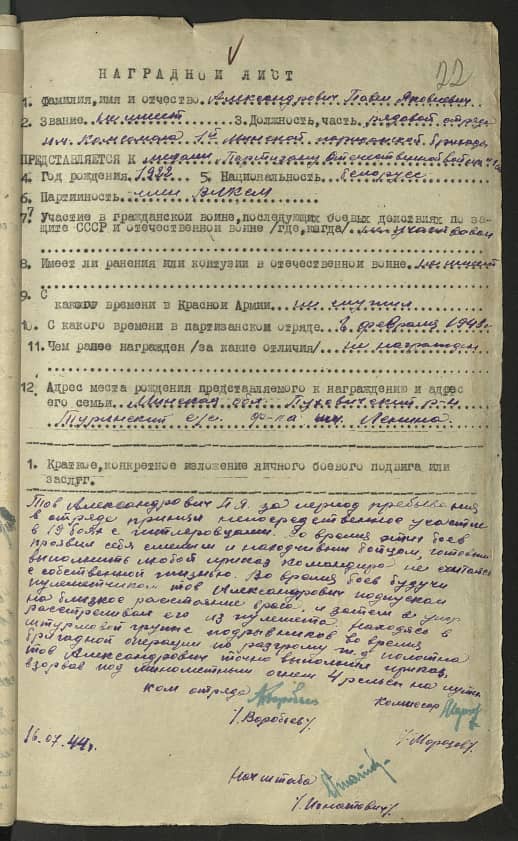 22
НАГРАДНОЙ ЛИСТ
1. Фамилия, имя и отчество Александрович Павел Яковлевич
2. Звание не имеет 3. Должность, часть рядовой отряда
им. Комсомола 1й Минской партизанской бригады
ПРЕДСТАВЛЯЕТСЯ К медали "Партизану Отечественной войны"
4. Год рождения 1922 5. Национальность белорус
6. Партийность член ВЛКСМ
7. Участие в гражданской войне, последующих боевых действиях по за-
щите СССР и отечественной войне /где, когда/ не участвовал
8. Имеет ли ранения или контузии в отечественной войне не имеет
9. С
какого времени в Красной Армии не служил
10. С какого времени в партизанском отряде с февраля 1943 г.
11. Чем ранее награжден /за какие отличия/ не награжден
12. Адрес места рождения представляемого к награждению и адрес
его семьи Минская обл. Пуховичский р-н
Туринский с/с. ф-ка им. Ленина.
1. Краткое, конкретное изложение личного боевого подвига или
заслуг.
Тов Александрович П.Я. за период пребывания
в отряде принял непосредственное участие
в 19 боях с гитлеровцами. Во время этих боев
проявил себя смелым и находчивым бойцом, готовым
выполнить любой приказ командира не считаясь
с собственной жизнью. Во время боев будучи
пулеметчиком тов Александрович подпускал
на близкое расстояние врага и затем в упор
расстреливал его из пулемета. Находясь в
штурмовой группе подрывников во время
бригадной операции по разгрому ж.д. полотна
тов Александрович точно выполнил приказ,
взорвав под минометным огнем 4 рельсы на пути.
ком отряда комиссар
/Воробьев/
16.07.44г. /Морозов/
Нач штаба
/Игнатович/